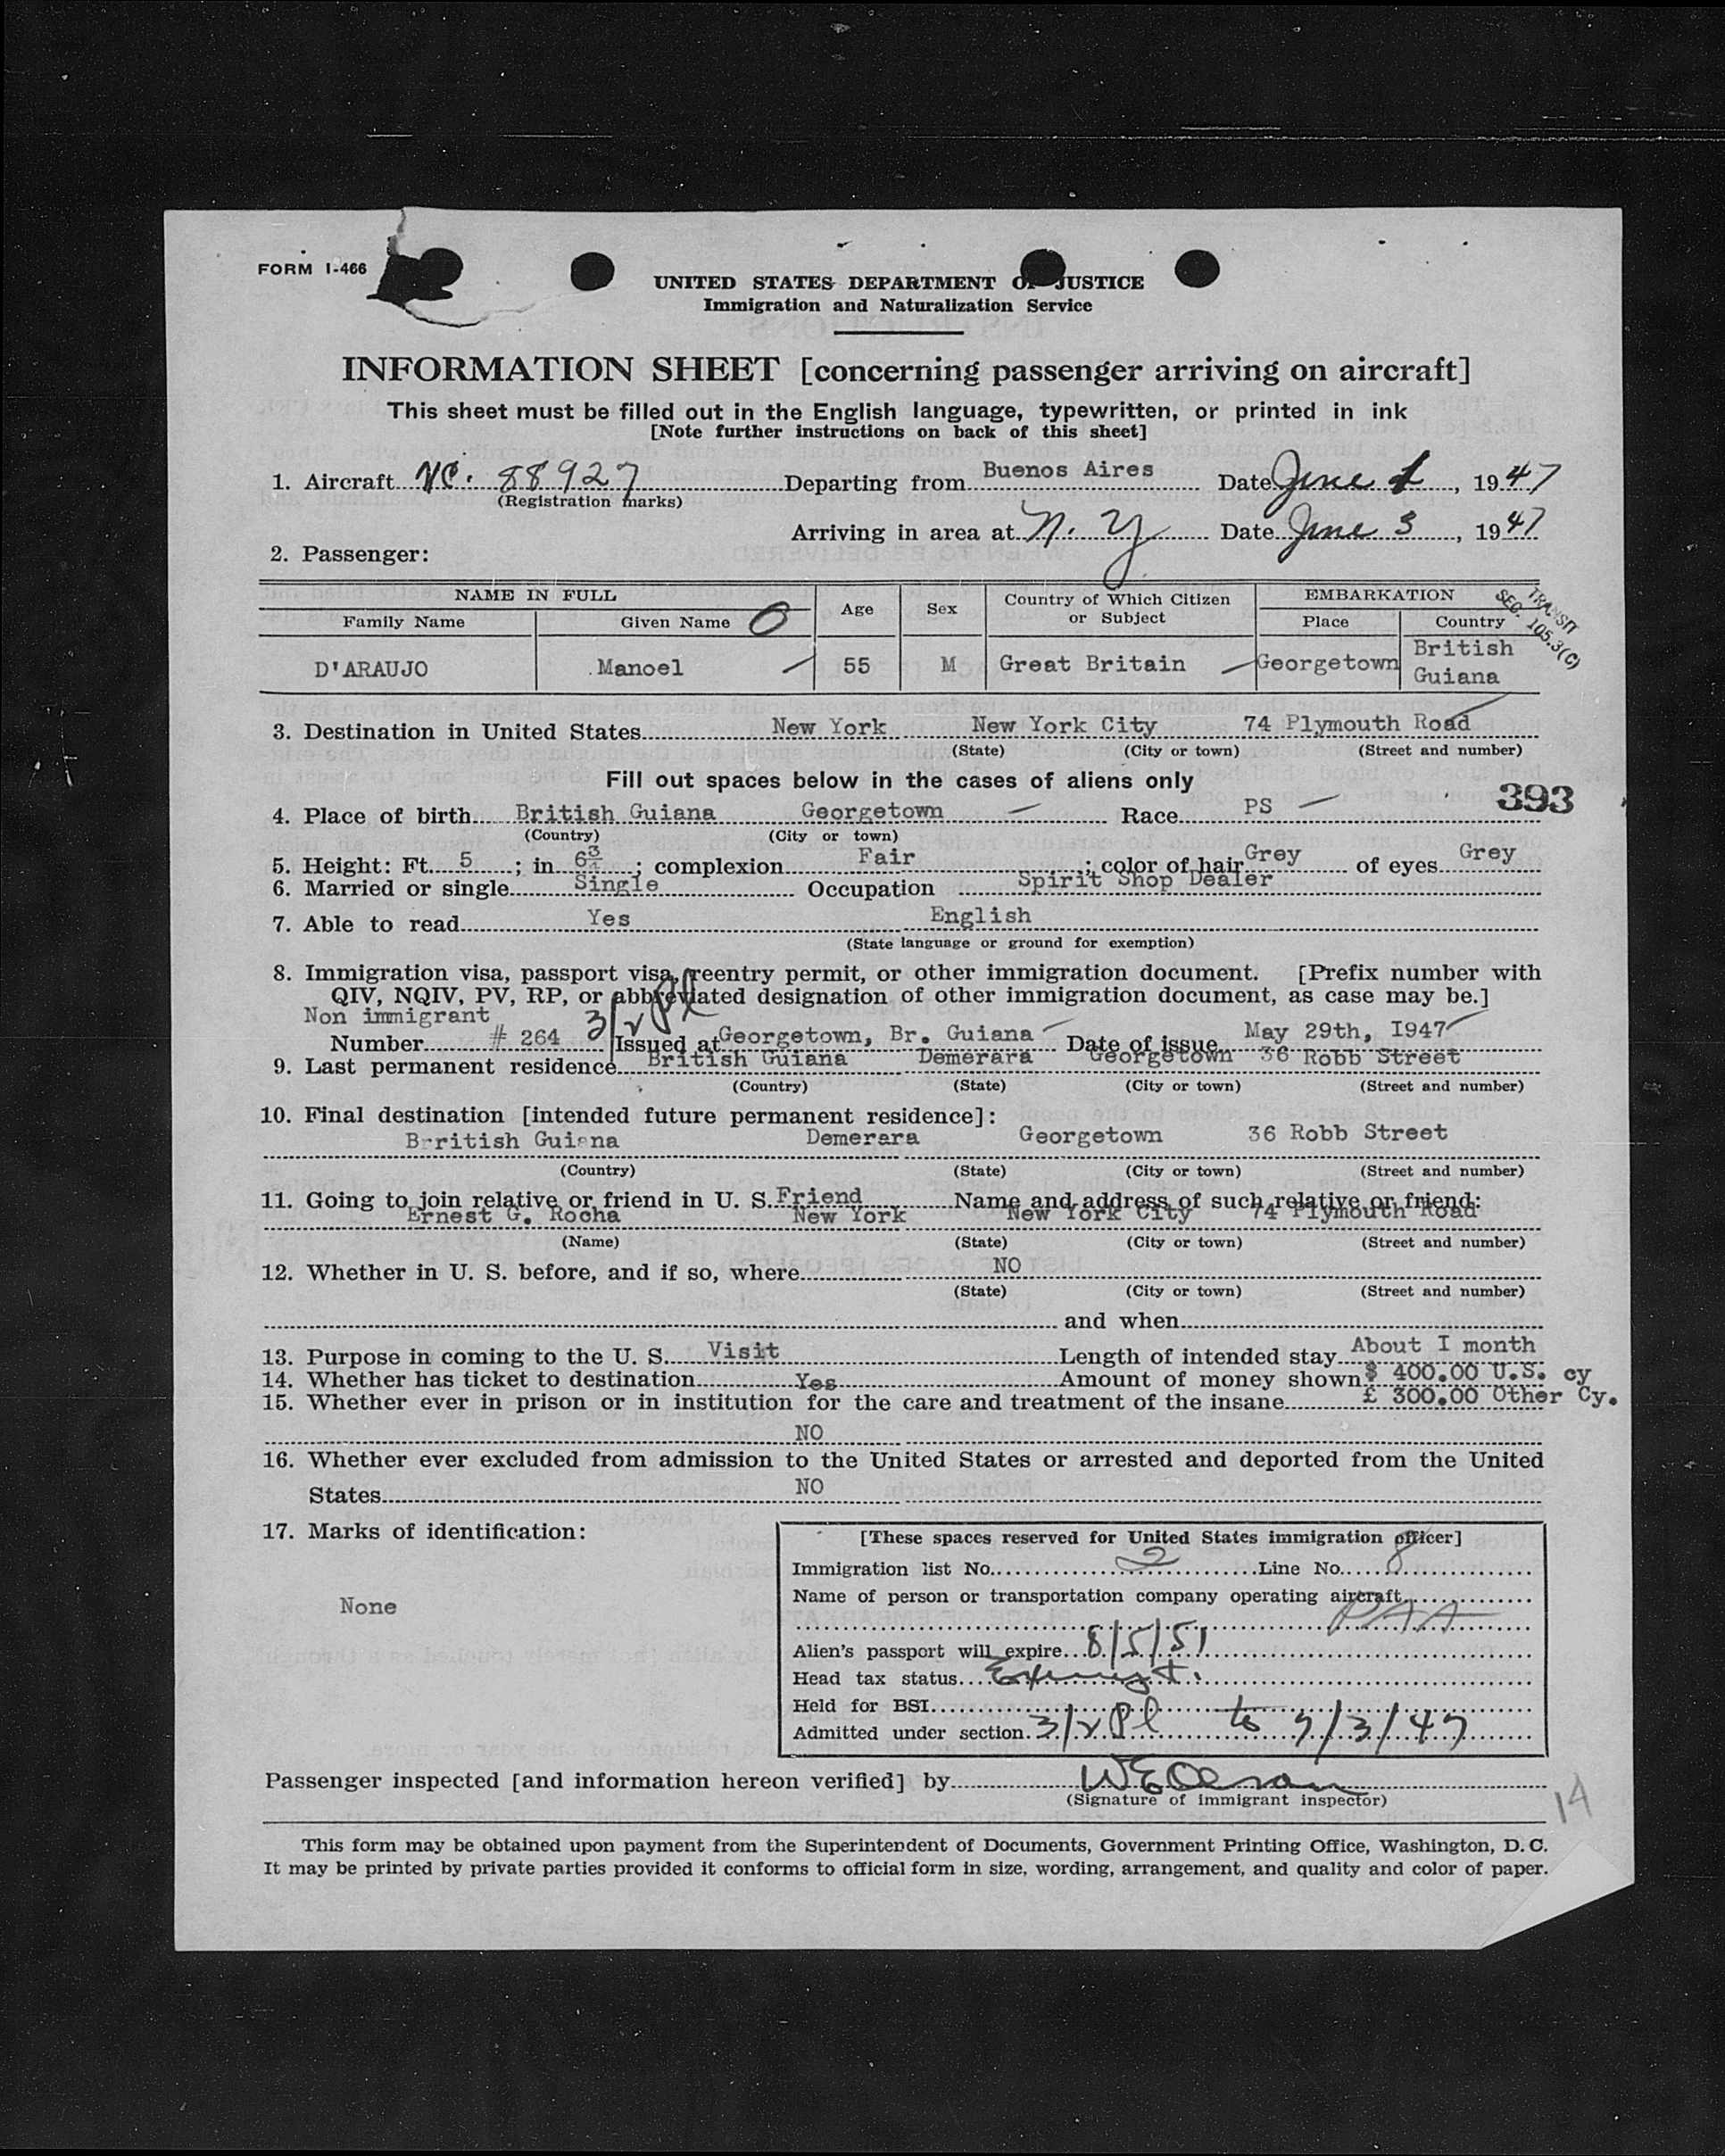 FORM I-466
UNITED STATES DEPARTMENT OF JUSTICE
Immigration and Naturalization Service
INFORMATION SHEET [concerning passenger arriving on aircraft]
This sheet must be filled out in the English language, typewritten, or printed in ink
[Note further instructions on back of this sheet]
1. Aircraft NC. 88927 Departing from Buenos Aires Date June 1, 1947
(Registration marks)
Arriving in area at N. Y Date June 3, 1947
2. Passenger:
NAME IN FULL Age Sex Country of Which Citizen or Subject EMBARKATION
Family Name Given Name Place Country
TRANSIT
SEC. 105.3(C)
D'ARAUJO Manoel 55 M Great Britain Georgetown British Guiana
3. Destination in United States New York New York City 74 Plymouth Road
(State) (City or town) (Street and number)
Fill out spaces below in the cases of aliens only
393
4. Place of birth British Guiana Georgetown Race PS
(Country) (City or town)
5. Height: Ft. 5; in 6 3/4; complexion Fair; color of hair Grey of eyes Grey
6. Married or single Single Occupation Spirit Shop Dealer
7. Able to read Yes English
(State language or ground for exemption)
8. Immigration visa, passport visa, reentry permit, or other immigration document. [Prefix number with
QIV, NQIV, PV, RP, or abbreviated designation of other immigration document, as case may be.]
Non immigrant 3/2 Pl
Number # 264 Issued at Georgetown, Br. Guiana Date of issue May 29th, I947
9. Last permanent residence British Guiana Demerara Georgetown 36 Robb Street
(Country) (State) (City or town) (Street and number)
10. Final destination [intended future permanent residece]:
Brritish Guiana Demerara Georgetown 36 Robb Street
(Country) (State) (City or town) (Street and number)
11. Going to join relative or friend in U. S. Friend Name and address of such relative or friend:
Ernest G. Rocha New York New York City 74 Plymouth Road
(Name) (State) (City or town) (Street and number)
12. Whether in U. S. before, and if so, where NO
(State) (City or town) (Street and number)
and when
13. Purpose in coming to the U. S. Visit Length of intended stay About I month
14. Whether has ticket to destination Yes Amount of money shown $ 400.00 U.S. cy
15. Whether ever in prison or in institution for the care and treatment of the insane £ 300.00 Other Cy.
NO
16. Whether ever excluded from admission to the United States or arrested and deported from the United
States NO
17. Marks of identification:
None
[These spaces reserved for United States immigration officer]
Immigration list No. 2 Line No. 8
Name of person or transportation company operating aircraft
PAA
Alien's passport will expire 8/5/51
Head tax status Exempt.
Held for BSI
Admitted under section 3/2 Pl to 7/3/47
Passenger inspected [and information hereon verified] by W E Olsson
(Signature of immigrant inspector)
14
This form may be obtained upon payment from the Superintendent of Documents, Government Printing Office, Washington, D. C.
It may be printed by private parties provided it conforms to official form in size, wording, arrangement, and quality and color of paper.